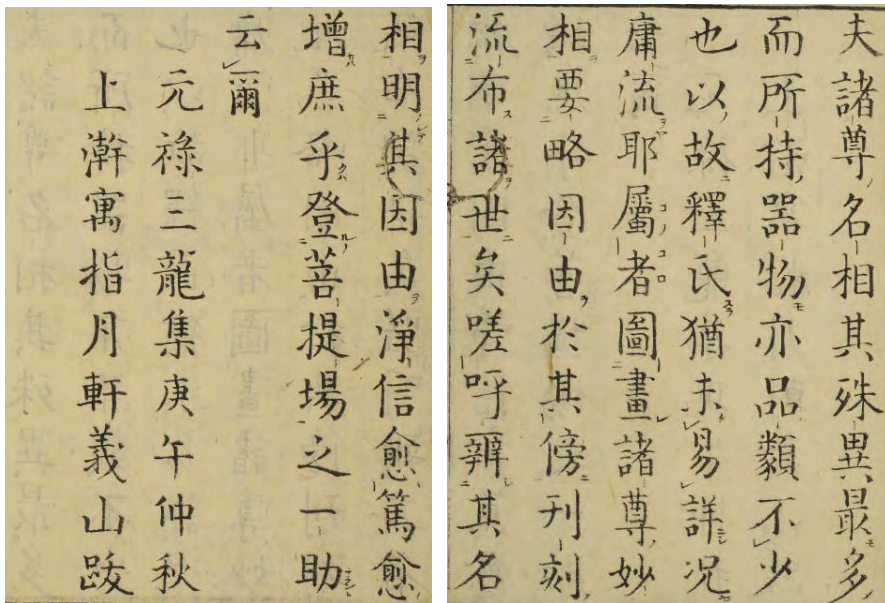 夫諸尊名相其殊異最多
而所持器物亦品類不少
也以故釋氏猶未易詳况
庸流耶屬者圖畫諸尊妙
相要略因由於其傍刊刻
流布諸世矣嗟呼辨其名
相明其因由淨信愈篤愈
增庶乎登菩提場之一助
云爾
元祿三龍集庚午仲秋
上澣寓指月軒義山跋